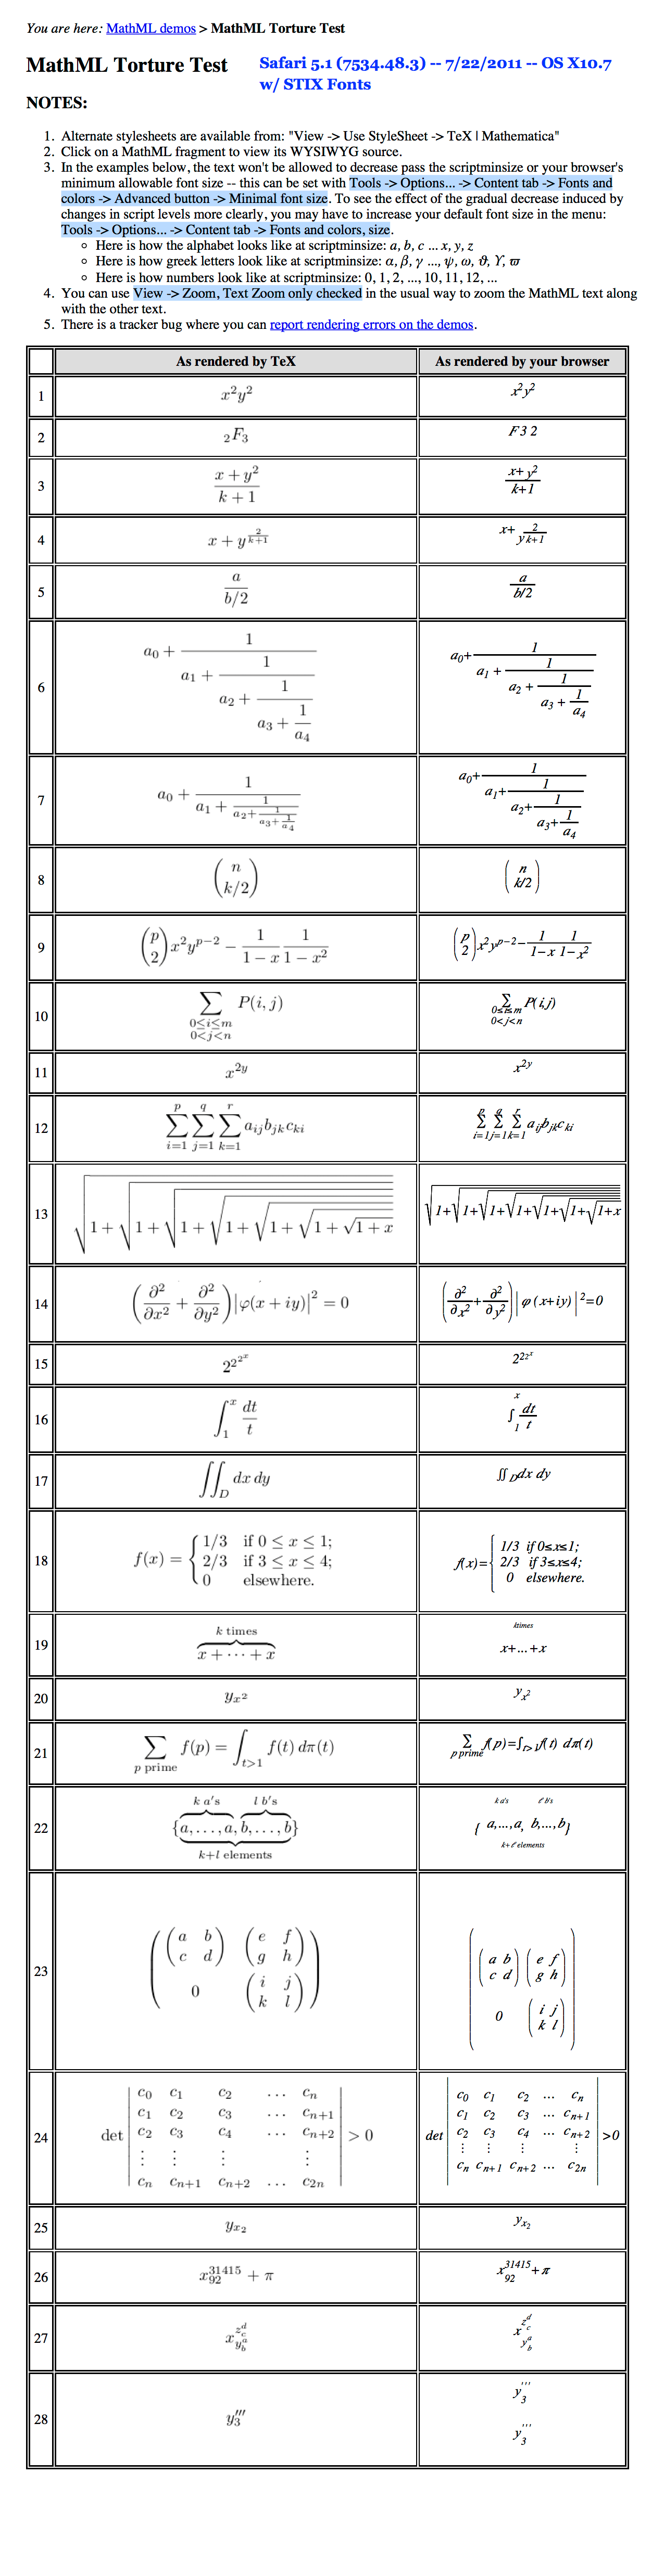 You are here: MathML demos > MathML Torture Test
MathML Torture Test
Safari 5.1 (7534.48.3) -- 7/22/2011 -- OS X10.7
w/ STIX Fonts
NOTES:
1. Alternate stylesheets are available from: "View -> Use StyleSheet -> TeX | Mathematica"
2. Click on a MathML fragment to view its WYSIWYG source.
3. In the examples below, the text won't be allowed to decrease pass the scriptminsize or your browser's
minimum allowable font size -- this can be set with Tools -> Options... -> Content tab -> Fonts and
colors -> Advanced button -> Minimal font size. To see the effect of the gradual decrease induced by
changes in script levels more clearly, you may have to increase your default font size in the menu:
Tools -> Options... -> Content tab -> Fonts and colors, size.
◦ Here is how the alphabet looks like at scriptminsize: a, b, c ... x, y, z
◦ Here is how greek letters look like at scriptminsize: α, β, γ ..., ψ, ω, ϑ, ϒ, ϖ
◦ Here is how numbers look like at scriptminsize: 0, 1, 2, ..., 10, 11, 12, ...
4. You can use View -> Zoom, Text Zoom only checked in the usual way to zoom the MathML text along
with the other text.
5. There is a tracker bug where you can report rendering errors on the demos.
As rendered by TeX As rendered by your browser
1 x^2y^2 x^2y^2
2 _2F_3 F3 2
3 \frac{x+y^2}{k+1} \frac{x+y^2}{k+1}
4 x+y^{\frac{2}{k+1}} x+ \frac{2}{yk+1}
5 \frac{a}{b/2} \frac{a}{b/2}
6 a_0+\frac{1}{a_1+\frac{1}{a_2+\frac{1}{a_3+\frac{1}{a_4}}}} a_0+\frac{1}{a_1+\frac{1}{a_2+\frac{1}{a_3+\frac{1}{a_4}}}}
7 a_0+\frac{1}{a_1+\frac{1}{a_2+\frac{1}{a_3+\frac{1}{a_4}}}} a_0+\frac{1}{a_1+\frac{1}{a_2+\frac{1}{a_3+\frac{1}{a_4}}}}
8 \binom{n}{k/2} \binom{n}{k/2}
9 \binom{p}{2}x^2y^{p-2}-\frac{1}{1-x}\frac{1}{1-x^2} \binom{p}{2}x^2y^{p-2}-\frac{1}{1-x}\frac{1}{1-x^2}
10 \sum_{0≤i≤m, 0<j<n} P(i,j) \sum_{0≤i≤m, 0<j<n} P(i,j)
11 x^{2y} x^{2y}
12 \sum_{i=1}^{p}\sum_{j=1}^{q}\sum_{k=1}^{r} a_{ij}b_{jk}c_{ki} \sum_{i=1}^{p}\sum_{j=1}^{q}\sum_{k=1}^{r} a_{ij}b_{jk}c_{ki}
13 \sqrt{1+\sqrt{1+\sqrt{1+\sqrt{1+\sqrt{1+\sqrt{1+\sqrt{1+x}}}}}}} \sqrt{1+\sqrt{1+\sqrt{1+\sqrt{1+\sqrt{1+\sqrt{1+\sqrt{1+x}}}}}}}
14 (\frac{∂^2}{∂x^2}+\frac{∂^2}{∂y^2})|φ(x+iy)|^2=0 (\frac{∂^2}{∂x^2}+\frac{∂^2}{∂y^2})|φ(x+iy)|^2=0
15 2^{2^{2^x}} 2^{2^{2^x}}
16 ∫_1^x \frac{dt}{t} ∫_1^x \frac{dt}{t}
17 ∬_D dx dy ∬_D dx dy
18 f(x) = { 1/3 if 0 ≤ x ≤ 1; 2/3 if 3 ≤ x ≤ 4; 0 elsewhere. f(x)={ 1/3 if 0≤x≤1; 2/3 if 3≤x≤4; 0 elsewhere.
19 k times x + ⋯ + x ktimes x+...+x
20 y_{x^2} y_{x^2}
21 \sum_{p prime} f(p) = ∫_{t>1} f(t) dπ(t) \sum_{p prime} f(p)=∫_{t>1} f(t) dπ(t)
22 k a's l b's {a,...,a, b,...,b} k+l elements k a's ℓ b's { a,...,a, b,...,b} k+ℓ elements
23 ( ( a b c d ) ( e f g h ) 0 ( i j k l ) ) ( ( a b c d ) ( e f g h ) 0 ( i j k l ) )
24 det | c_0 c_1 c_2 ... c_n c_1 c_2 c_3 ... c_{n+1} c_2 c_3 c_4 ... c_{n+2} ⋮ ⋮ ⋮ ⋮ c_n c_{n+1} c_{n+2} ... c_{2n} | > 0 det | c_0 c_1 c_2 ... c_n c_1 c_2 c_3 ... c_{n+1} c_2 c_3 c_4 ... c_{n+2} ⋮ ⋮ ⋮ ⋮ c_n c_{n+1} c_{n+2} ... c_{2n} | >0
25 y_{x_2} y_{x_2}
26 x_{92}^{31415} + π x_{92}^{31415}+π
27 x_{y_b^a}^{z_c^d} x_{y_b^a}^{z_c^d}
28 y_3''' y_3'''
y_3'''